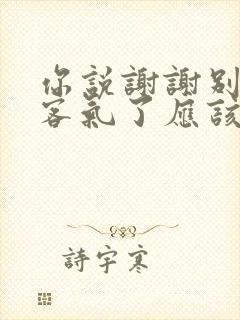 你說謝謝別
客氣了應該
詩宇寒